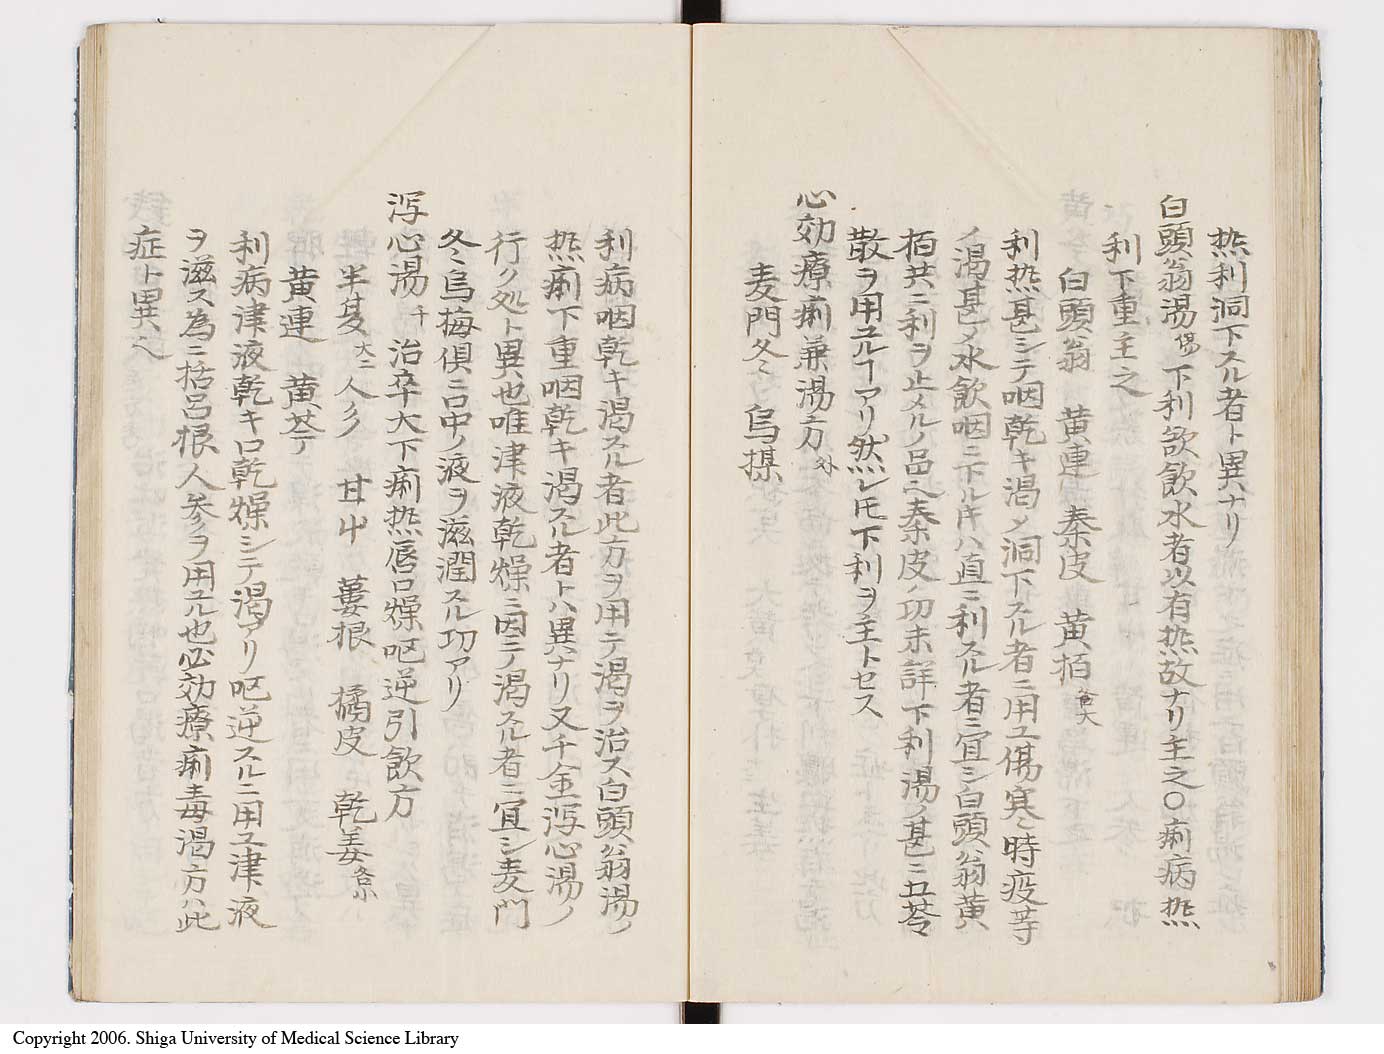 熱利洞下スル者ト異ナリ
白頭翁湯 傷 下利欲飲水者以有熱故ナリ主之〇痢病熱
利下重主之
白頭翁 黄連 秦皮 黄栢 各大
利熱甚シテ咽乾キ渇メ洞下スル者ニ用ユ傷寒時疫等
ノ渇甚メ水飲咽ニ下ル片ハ直ニ利スル者ニ宜シ白頭翁黄
栢共ニ利ヲ止メルノ品ヘ秦皮ノ功未詳下利湯ノ甚ニ五苓
散ヲ用ユルヿアリ然レ𪜈下利ヲ主トセス
心効療痢兼湯方 外
麦門冬 烏楳
利病咽乾キ渇スル者此方ヲ用テ渇ヲ治ス白頭翁湯ノ
熱痢下重咽乾キ渇スル者トハ異ナリ又千金瀉心湯ノ
行ク処ト異也唯津液乾燥ニ因テノ渇スル者ニ宜シ麦門
冬烏梅倶ニ口中ノ液ヲ滋潤スル功アリ
瀉心湯 千 治卒大下痢熱唇口燥呕逆引飲方
半夏 大二 人参 甘艸 蔞根 橘皮 乾姜 各小
黄連 黄芩
利病津液乾キ口乾燥シテ渇アリ呕逆スルニ用ユ津液
ヲ滋ス為ニ括呂根人参ヲ用ユル也必効療痢毒渇方ハ此
症ト異ヘ
Copyright 2006. Shiga University of Medical Science Library